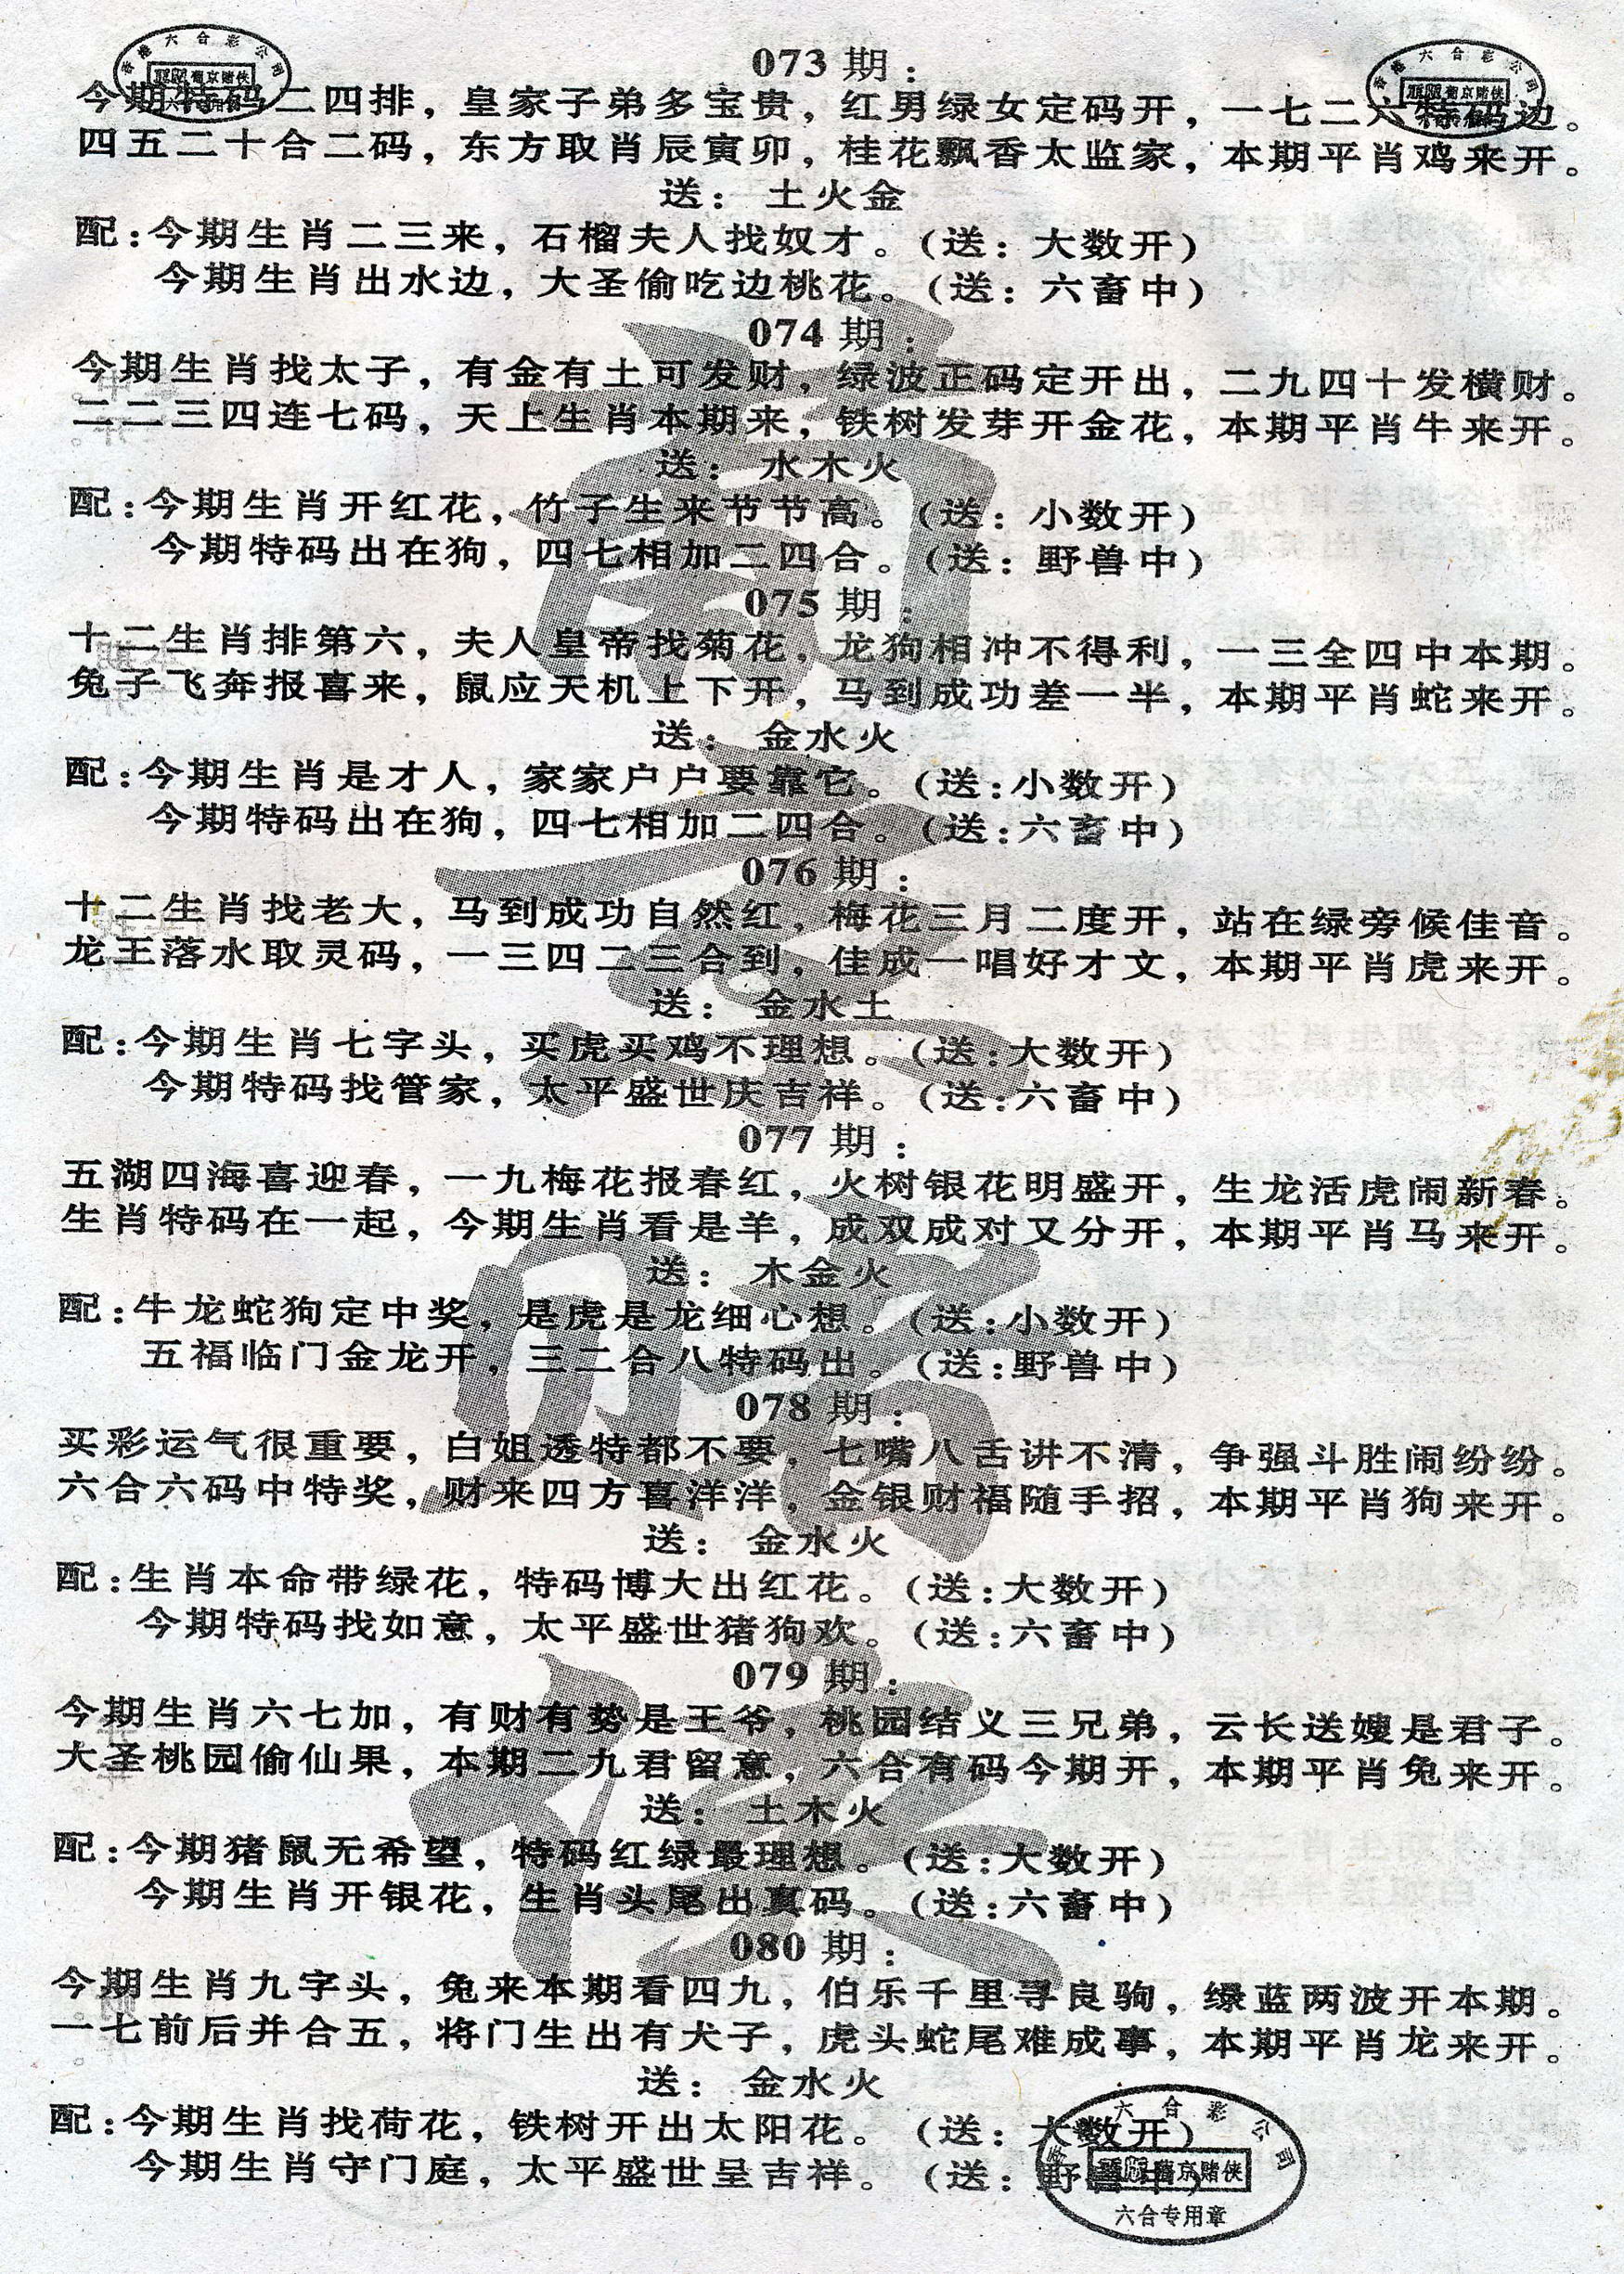 香港六合彩公司
正版 葡京赌侠
六合专用章
香港六合彩公司
正版 葡京赌侠
073期：
今期特码二四排，皇家子弟多宝贵，红男绿女定码开，一七二六特码边。
四五二十合二码，东方取肖辰寅卯，桂花飘香太监家，本期平肖鸡来开。
送：土火金
配：今期生肖二三来，石榴夫人找奴才。（送：大数开）
今期生肖出水边，大圣偷吃边桃花。（送：六畜中）
074期：
今期生肖找太子，有金有土可发财，绿波正码定开出，二九四十发横财。
二二三四连七码，天上生肖本期来，铁树发芽开金花，本期平肖牛来开。
送：水木火
配：今期生肖开红花，竹子生来节节高。（送：小数开）
今期特码出在狗，四七相加二四合。（送：野兽中）
075期：
十二生肖排第六，夫人皇帝找菊花，龙狗相冲不得利，一三全四中本期。
兔子飞奔报喜来，鼠应天机上下开，马到成功差一半，本期平肖蛇来开。
送：金水火
配：今期生肖是才人，家家户户要靠它。（送：小数开）
今期特码出在狗，四七相加二四合。（送：六畜中）
076期：
十二生肖找老大，马到成功自然红，梅花三月二度开，站在绿旁候佳音。
龙王落水取灵码，一三四二三合到，佳成一唱好才文，本期平肖虎来开。
送：金水土
配：今期生肖七字头，买虎买鸡不理想。（送：大数开）
今期特码找管家，太平盛世庆吉祥。（送：六畜中）
077期：
五湖四海喜迎春，一九梅花报春红，火树银花明盛开，生龙活虎闹新春。
生肖特码在一起，今期生肖看是羊，成双成对又分开，本期平肖马来开。
送：木金火
配：牛龙蛇狗定中奖，是虎是龙细心想。（送：小数开）
五福临门金龙开，三二合八特码出。（送：野兽中）
078期：
买彩运气很重要，白姐透特都不要，七嘴八舌讲不清，争强斗胜闹纷纷。
六合六码中特奖，财来四方喜洋洋，金银财福随手招，本期平肖狗来开。
送：金水火
配：生肖本命带绿花，特码博大出红花。（送：大数开）
今期特码找如意，太平盛世猪狗欢。（送：六畜中）
079期：
今期生肖六七加，有财有势是王爷，桃园结义三兄弟，云长送嫂是君子。
大圣桃园偷仙果，本期二九君留意，六合有码今期开，本期平肖兔来开。
送：土木火
配：今期猪鼠无希望，特码红绿最理想。（送：大数开）
今期生肖开银花，生肖头尾出真码。（送：六畜中）
080期：
今期生肖九字头，兔来本期看四九，伯乐千里寻良驹，绿蓝两波开本期。
一七前后并合五，将门生出有犬子，虎头蛇尾难成事，本期平肖龙来开。
送：金水火
配：今期生肖找荷花，铁树开出太阳花。（送：大数开）
今期生肖守门庭，太平盛世呈吉祥。（送：野兽中）
香港六合彩公司
正版 葡京赌侠
六合专用章